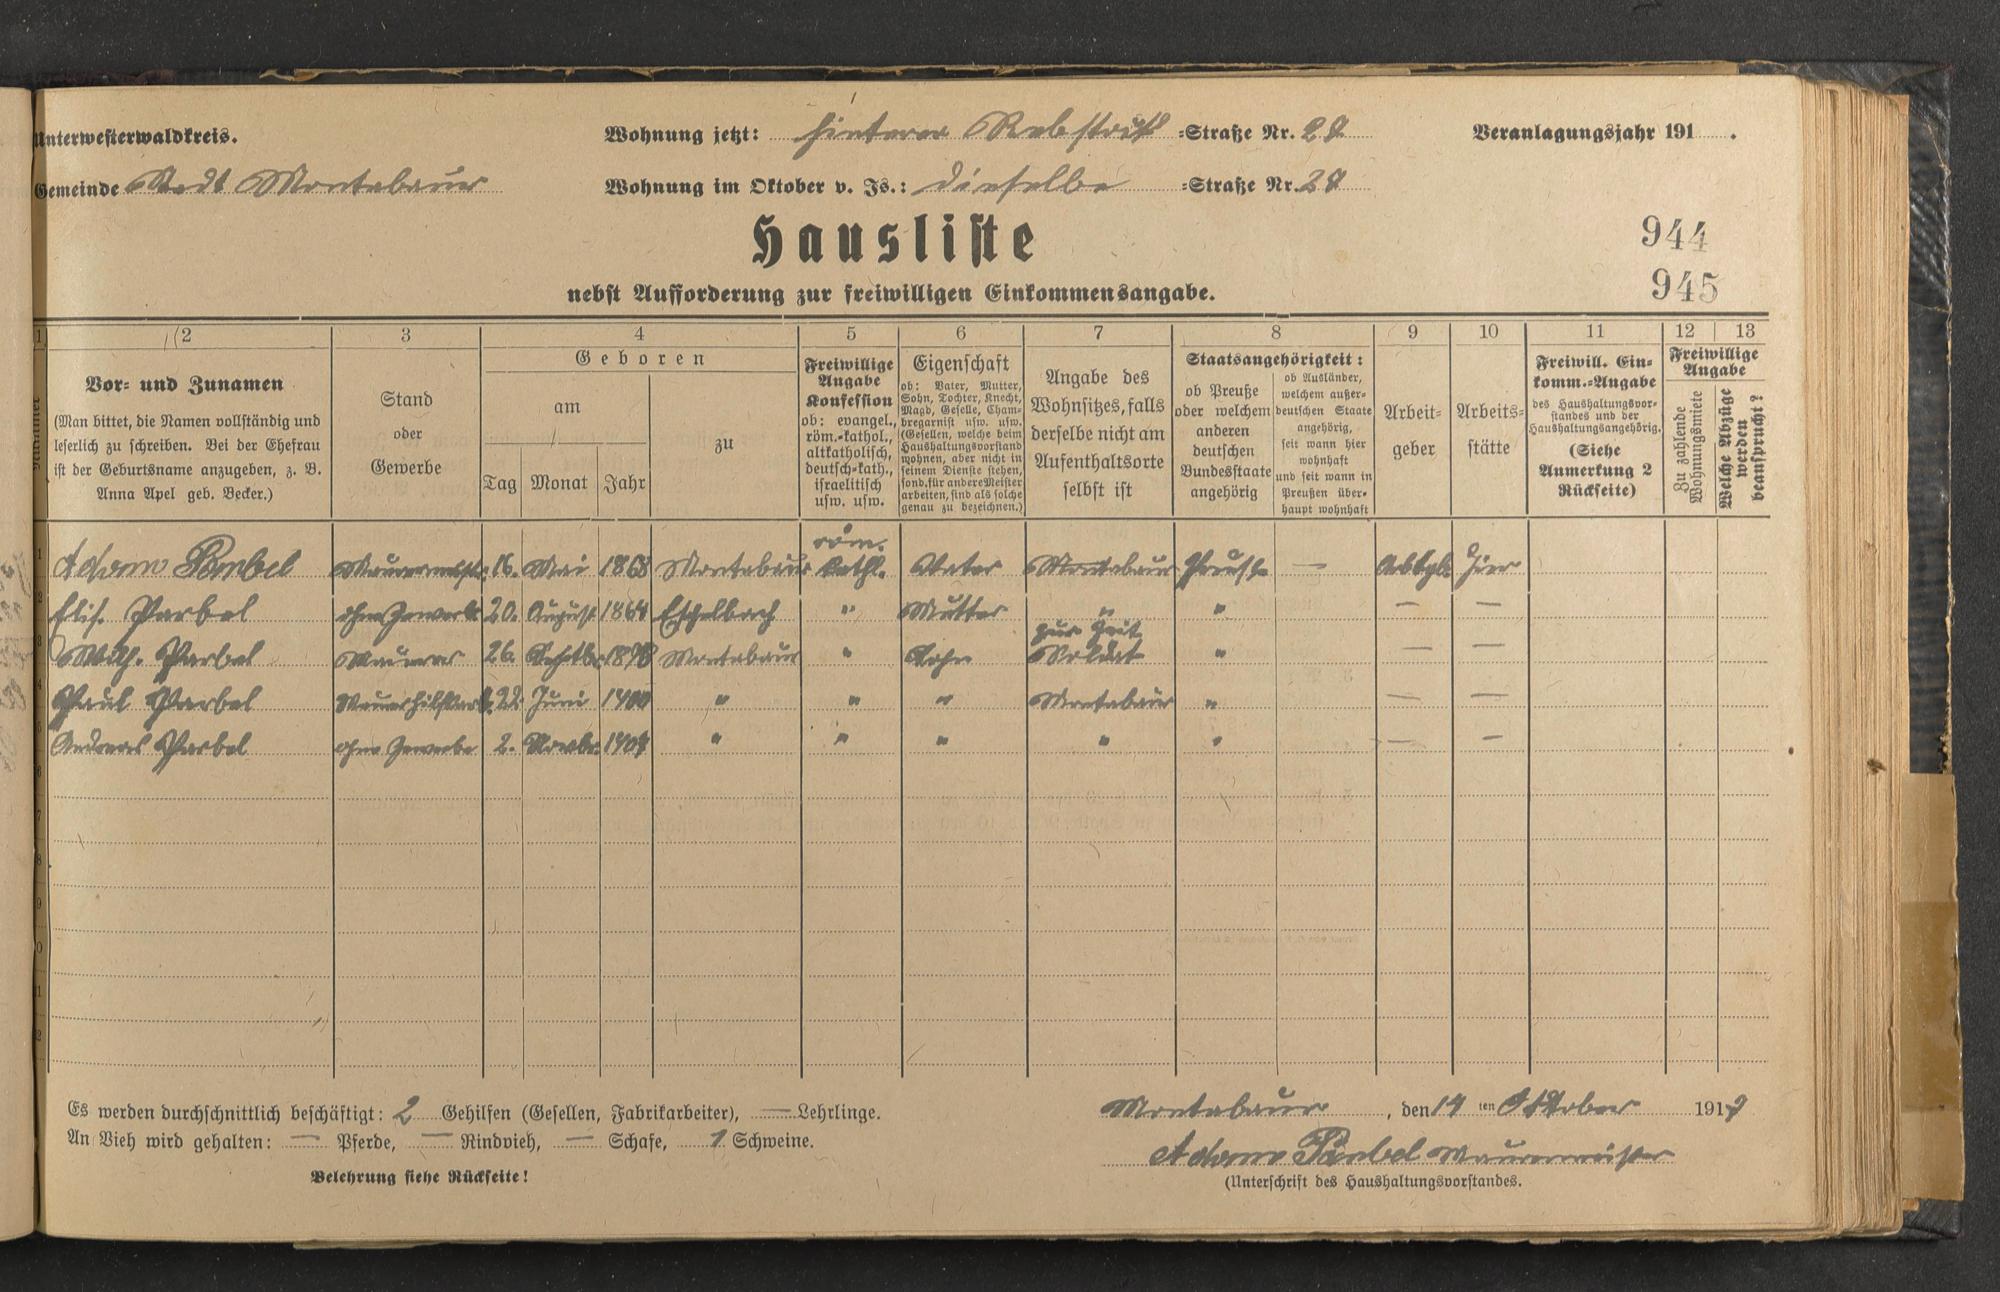 Unterwesterwaldkreis.
Wohnung jetzt: hinterer Rebstock =Straße Nr. 28
Veranlagungsjahr 191 .
Gemeinde Stadt Montabaur
Wohnung im Oktober v. Js.: dieselbe =Straße Nr. 28
Hausliste
944
945
nebst Aufforderung zur freiwilligen Einkommensangabe.
1 2 3 4 5 6 7 8 9 10 11 12 13
Vor= und Zunamen
(Man bittet, die Namen vollständig und
leserlich zu schreiben. Bei der Ehefrau
ist der Geburtsname anzugeben, z. B.
Anna Apel geb. Becker.)
Stand
oder
Gewerbe
Geboren
am
Tag Monat Jahr
zu
Freiwillige
Angabe
Konfession
ob: evangel.,
röm.=kathol.,
altkatholisch,
deutsch=kath.,
israelitisch
usw. usw.
Eigenschaft
ob: Vater, Mutter,
Sohn, Tochter, Knecht,
Magd, Geselle, Cham=
bregarnist usw. usw.
(Gesellen, welche beim
Haushaltungsvorstand
wohnen, aber nicht in
seinem Dienste stehen,
sond. für andere Meister
arbeiten, sind als solche
genau zu bezeichnen.)
Angabe des
Wohnsitzes, falls
derselbe nicht am
Aufenthaltsorte
selbst ist
Staatsangehörigkeit:
ob Preuße
oder welchem
anderen
deutschen
Bundesstaate
angehörig
ob Ausländer,
welchem außer=
deutschen Staate
angehörig,
seit wann hier
wohnhaft
und seit wann in
Preußen über=
haupt wohnhaft
Arbeit=
geber
Arbeits=
stätte
Freiwill. Ein=
komm.=Angabe
des Haushaltungsvor=
standes und der
Haushaltungsangehörig.
(Siehe
Anmerkung 2
Rückseite)
Freiwillige
Angabe
Zu zahlende
Wohnungsmiete
Welche Abzüge
werden
beansprucht?
1 Adam Parbel Maurermstr. 16. Mai 1863 Montabaur röm. kathl. Vater Montabaur Preuße — Arbtgb. hier
Elis. Parbel ohne Gewerb. 20. August 1864 Eschelbach " Mutter " " — —
3 Wilh. Parbel Maurer 26. Septbr. 1898 Montabaur " Sohn zur Zeit Soldat " — —
4 Paul Parbel 22. Juni 1900 " " " Montabaur " — —
Andreas Parbel ohne Gewerbe 2. Novbr. " " " " " — —
Es werden durchschnittlich beschäftigt: 2 Gehilfen (Gesellen, Fabrikarbeiter), — Lehrlinge.
An Vieh wird gehalten: — Pferde, — Rindvieh, — Schafe, 1 Schweine.
Belehrung siehe Rückseite!
Montabaur, den 14 ten Oktober 191
Adam Parbel Maurermeister
(Unterschrift des Haushaltungsvorstandes.